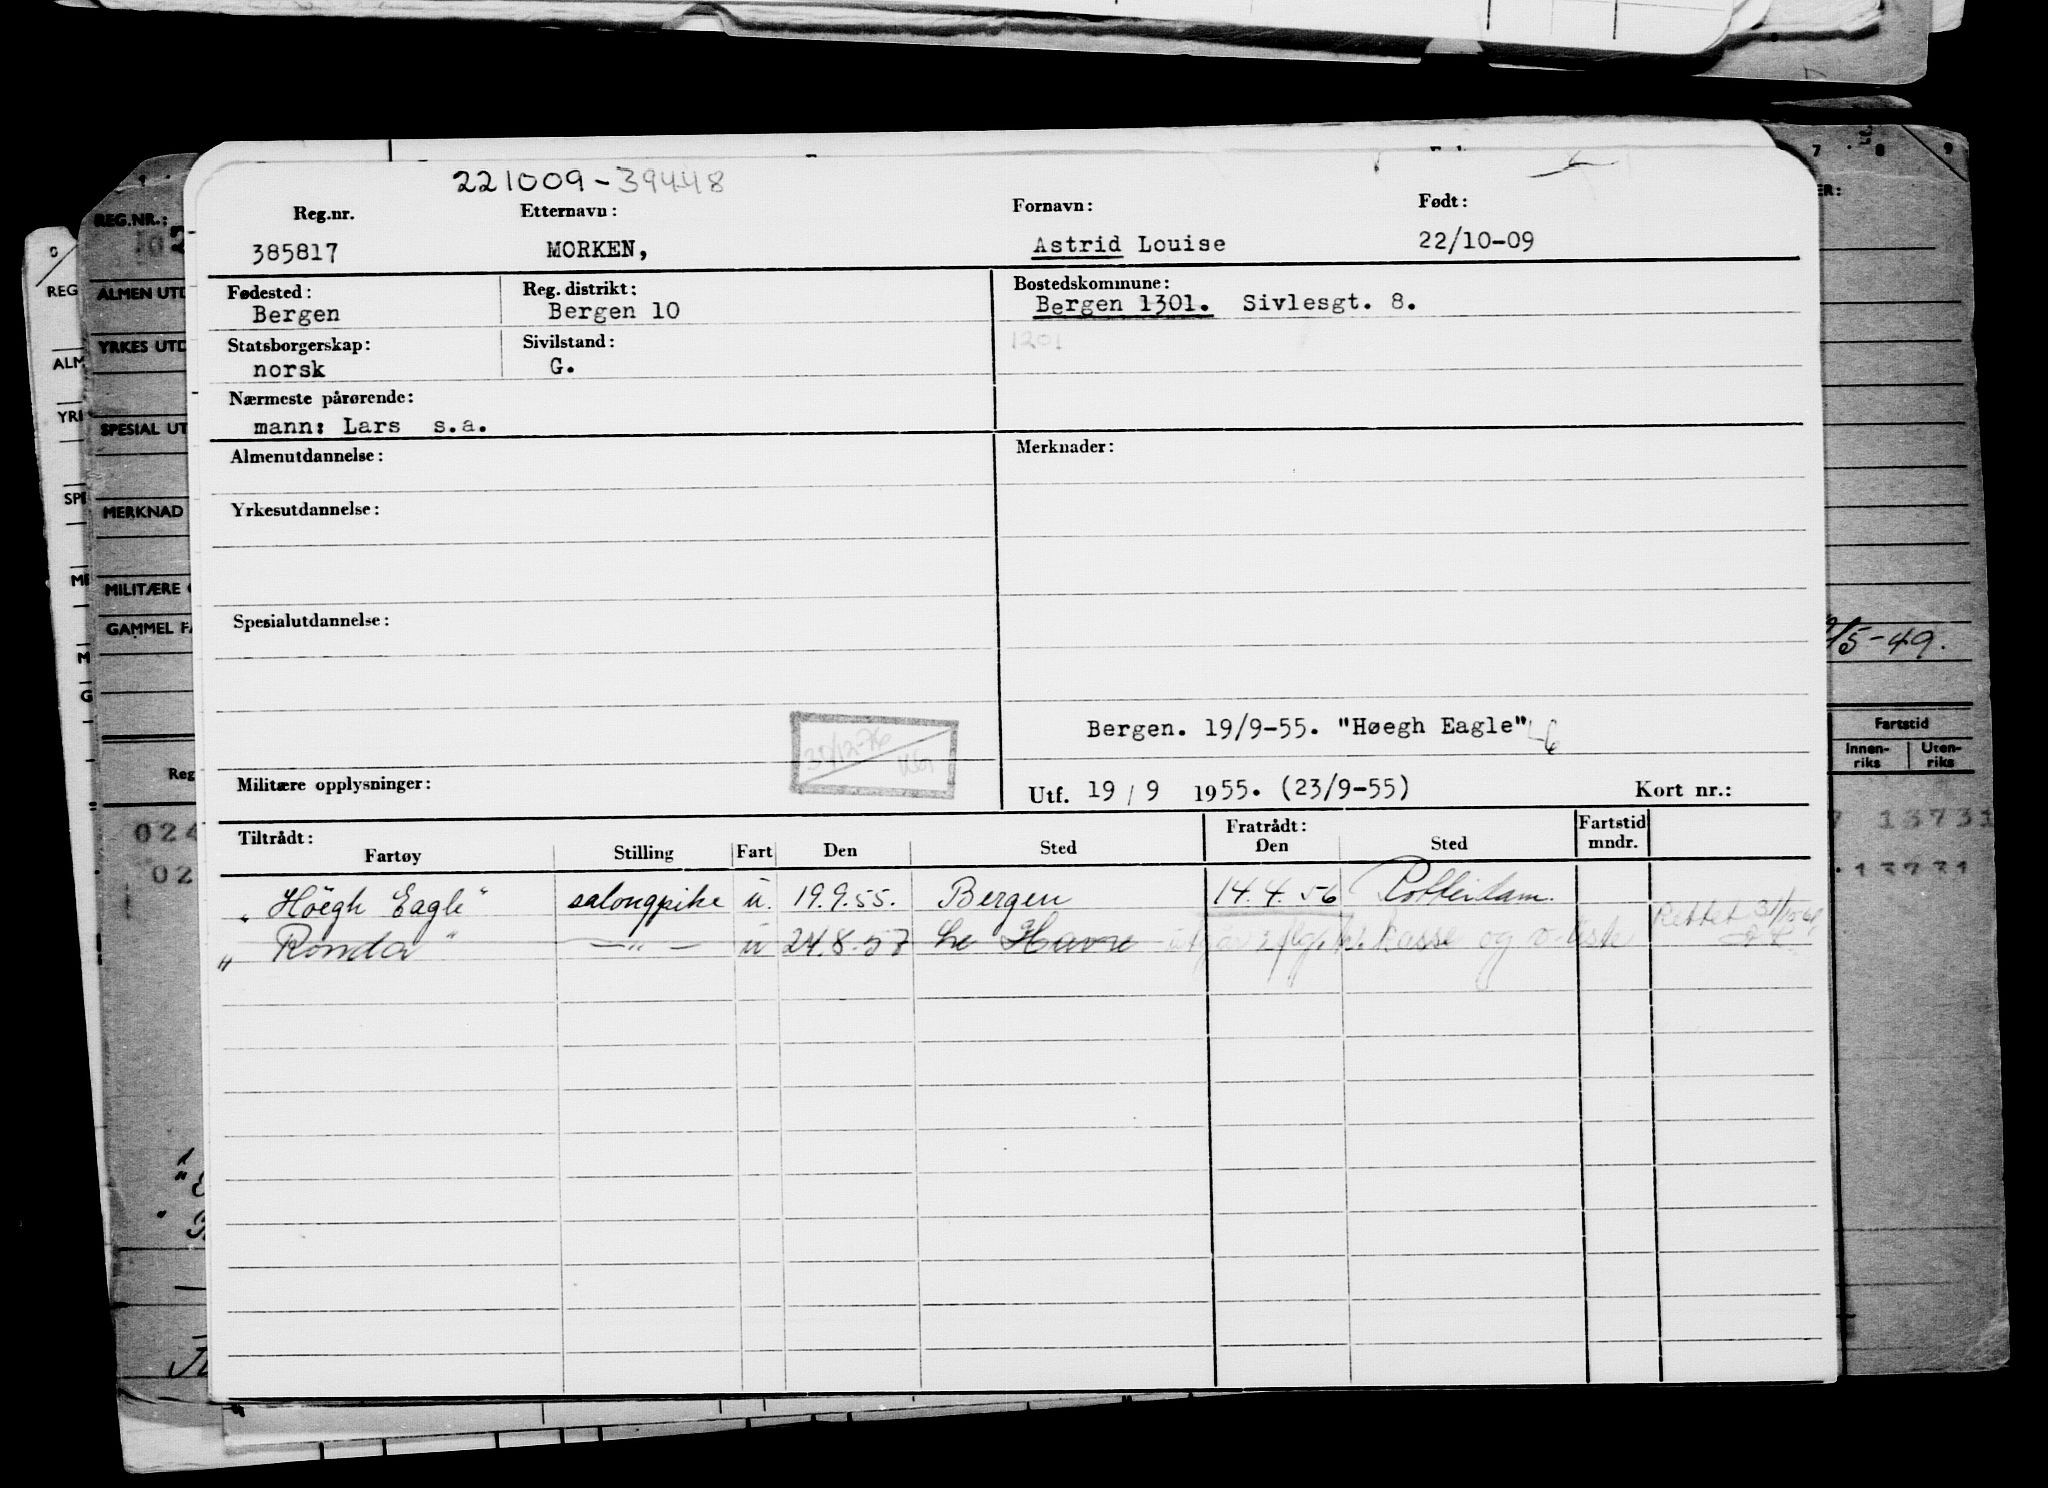 221009-39448
Reg.nr. Etternavn: Fornavn: Født:
385817 MORKEN, Astrid Louise 22/10-09
Fødested: Reg. distrikt: Bostedskommune:
Bergen Bergen 10 Bergen 1301. Sivlesgt. 8.
1201
Statsborgerskap: Sivilstand:
norsk G.
Nærmeste pårørende:
mann: Lars s.a.
Almenutdannelse: Merknader:
Yrkesutdannelse:
Spesialutdannelse:
Bergen. 19/9-55. "Høegh Eagle"
Militære opplysninger:
Utf. 19/9 1955. (23/9-55) Kort nr.:
Tiltrådt: Fratrådt: Fartstid
Fartøy Stilling Fart Den Sted Den Sted mndr.
"Höegh Eagle" salongpike u. 19.9.55. Bergen 14.4.56 Rotterdam.
"Ronda" —"— u 24.8.57 Le Havre utgår kasse og Rettet
REG.NR.:
ALMEN UTD
YRKES UTD
SPESIAL UT
MERKNAD
MILITÆRE
GAMMEL FA
Reg
024
02
REG
ALM
YRI
SPE
M
G
7 8 9
ER:
/5-49.
Fartstid
Innen-riks Uten-riks
13731
13731